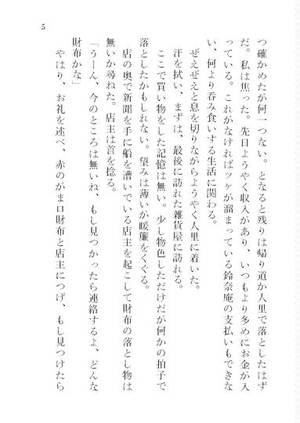 つ確かめたが何一つない。となると残りは帰り道か人里で落としたはず
だ。私は焦った。先日ようやく収入があり、いつもより多めにお金が入
っている。これがなければツケが溜まっている鈴奈庵の支払いもできな
い、何より呑み食いする生活に関わる。
ぜえぜえと息を切りながらようやく人里に着いた。
汗を拭い、まずは、最後に訪れた雑貨屋に訪れる。
ここで買い物をした記憶は無い。少し物色しただけだが何かの拍子で
落としたかもしれない。望みは薄いが暖簾をくぐる。
店の奥で新聞を手に船を漕いでいる店主を起こして財布の落とし物は
無いか尋ねた。店主は首を捻る。
「うーん、今のところは無いね、もし見つかったら連絡するよ、どんな
財布かな」
やはり、お礼を述べ、赤のがまロ財布と店主につげ、もし見つけたら
5